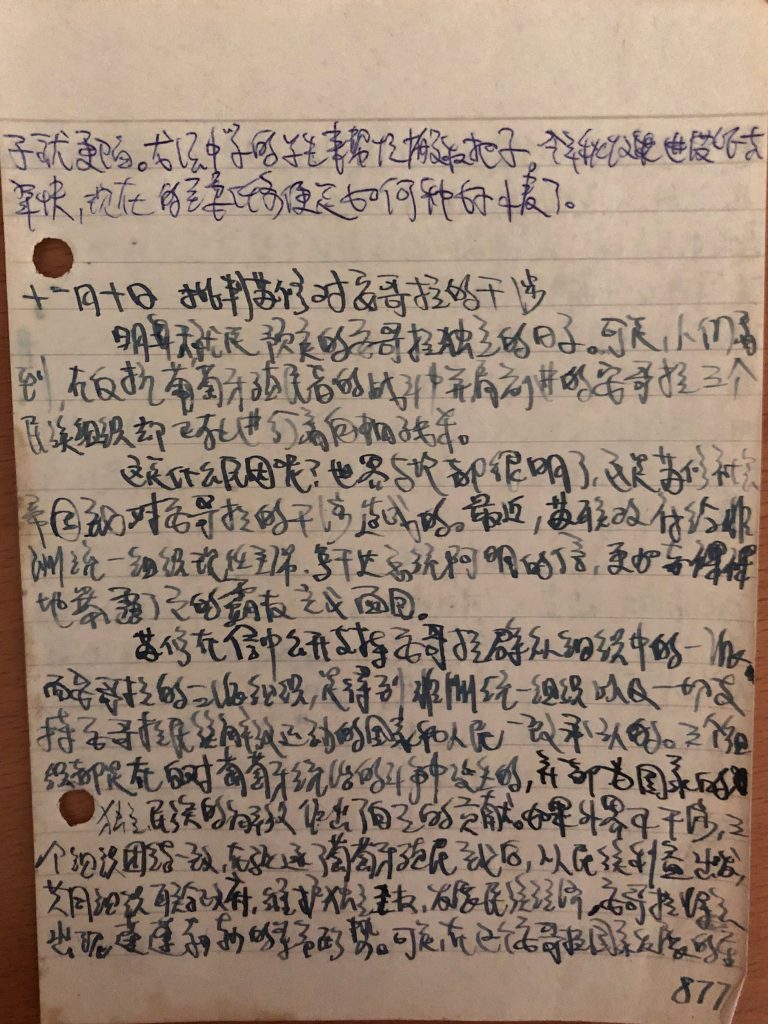 子就更
的学生来帮忙搬
快,现在的主要任务便是如何种好小麦了。
十一月十日 批判苏修对安哥拉的干涉
明天就是预定的安哥拉独立的日子。可是,人们看
到,在反抗葡萄牙殖民者的战斗中并肩前进的安哥拉三个
民族组织却正在进行着自相残杀。
这是什么原因呢?世界舆论都很明了,这是苏修社会
帝国主义对安哥拉的干涉造成的。最近,苏联政府给非
洲统一组织现任主席、乌干达总统阿明的信,更加赤裸裸
地暴露了它的霸权主义面目。
苏修在信中公开支持安哥拉解放组织中的一派。
而安哥拉的三派组织,是得到非洲统一组织以及一切支
持安哥拉民族解放运动的国家和人民一致承认的。三个组
织都是在反对葡萄牙统治的斗争中诞生的,并都为国家的
独立民族的解放作出了自己的贡献。如果外界不干涉,三
个组织团结一致,在赶走了葡萄牙殖民主义后,从民族利益出发,
共同组织联合政府,维护独立主权,发展民族经济,安哥拉将会
出现蓬蓬勃勃的革命形势。可是,在这个安哥拉国家
877